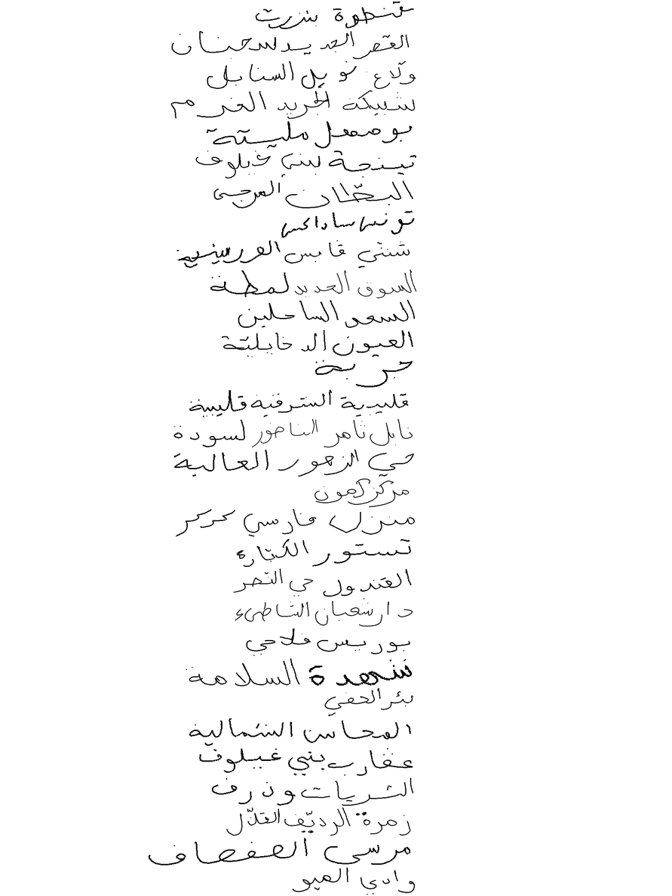 قنطرة بنزرت
القصر الجديد سجنان
ولاع نويل السنابل
شبيكة الجريد القرم
بوصمل مليتة
تينجة بني غيلوف
البطان المرجى
تونس ساداكس
شنني قابس العربينية
السوق الجديد لمطة
السعد الساحلين
العيون الدخايلية
جربة
قليبية الشرفية قليبية
نابل ثامر الناظور لسودة
حي الزهور العالية
مركز كمون
منزل فارسي كركر
تستور الكتارة
القندول حي النصر
دار شعبان الشاطىء
بوريس فلاحي
شهدة السلامة
بئر الحفي
المحاسن الشمالية
عقارب بني غيلوف
الشريات وذرف
زمرة الرديّف القلّال
مرسى الصفصاف
وادي العيو